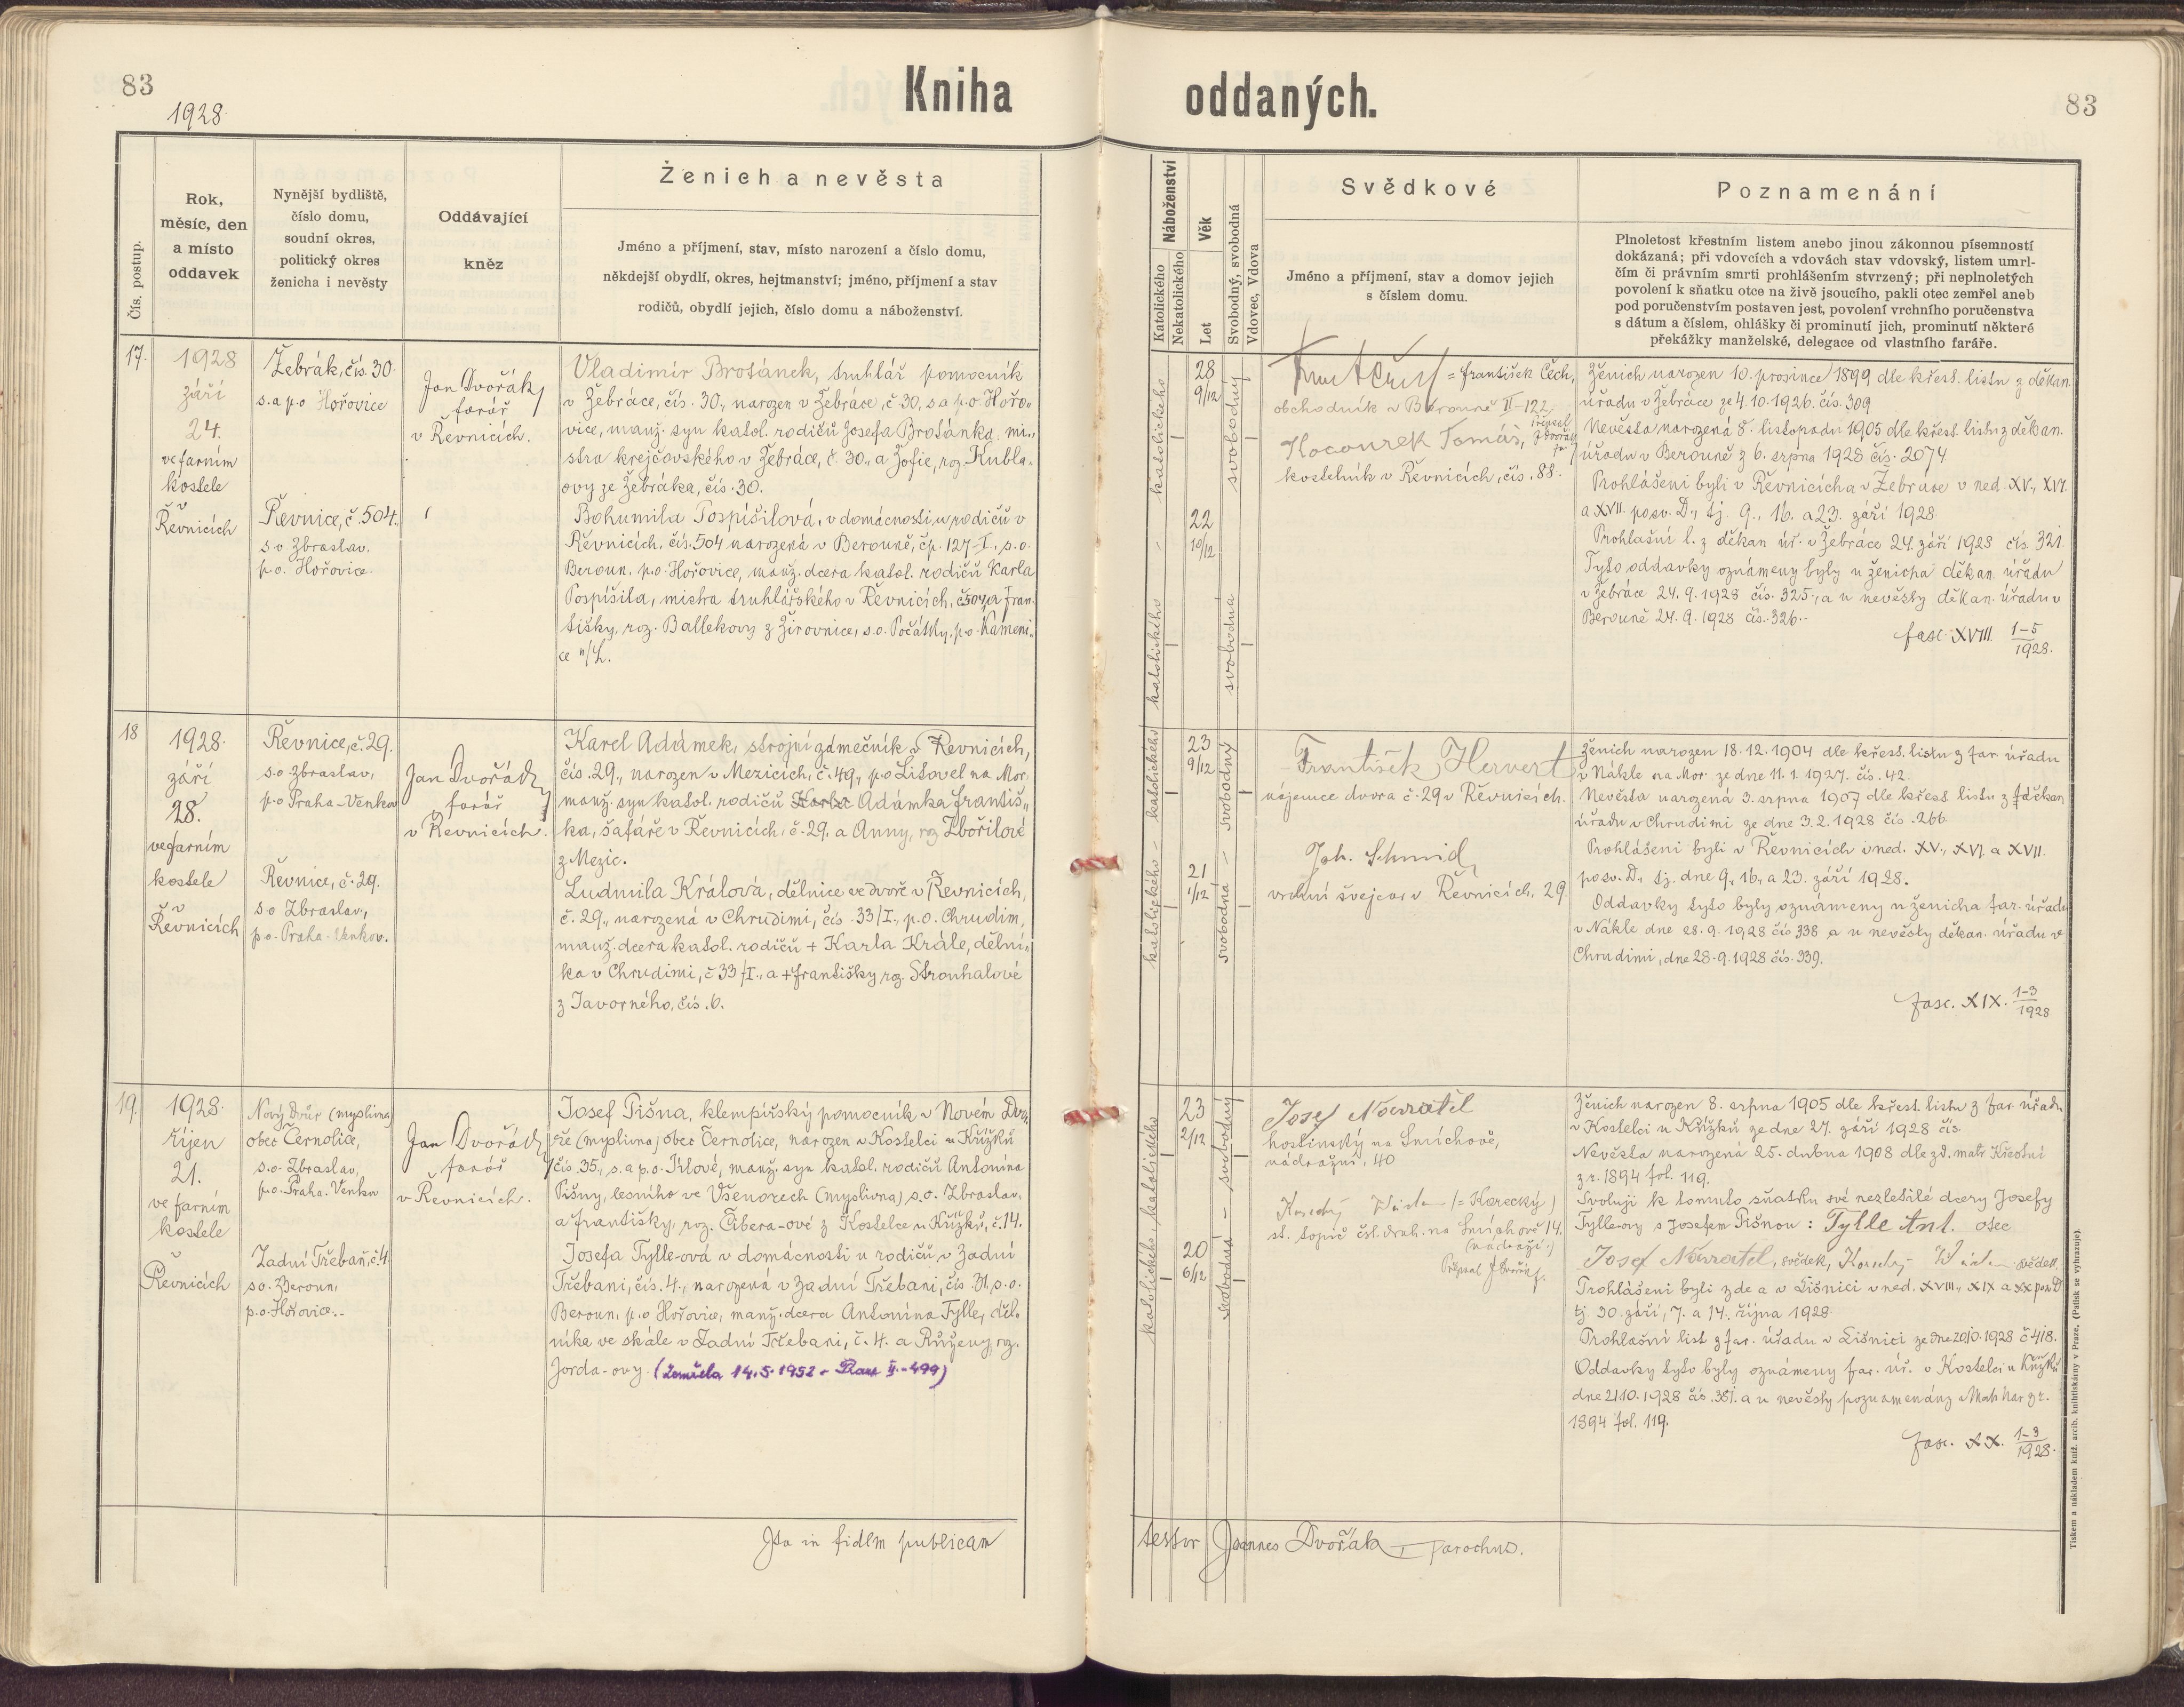 83
1928.
Kniha oddaných.
83
Čís. postup.
Rok,
měsíc, den
a místo
oddavek
Nynější bydliště,
číslo domu,
soudní okres,
politický okres
ženicha i nevěsty
Oddávající
kněz
Ženich a nevěsta
Jméno a příjmení, stav, místo narození a číslo domu,
někdejší obydlí, okres, hejtmanství; jméno, příjmení a stav
rodičů, obydlí jejich, číslo domu a náboženství.
Náboženství
Katolického
Nekatolického
Věk
Let
Svobodný, svobodná
Vdovec, Vdova
Svědkové
Jméno a příjmení, stav a domov jejich
s číslem domu.
Poznamenání
Plnoletost křestním listem anebo jinou zákonnou písemností
dokázaná; při vdovcích a vdovách stav vdovský, listem umrl-
čím či právním smrti prohlášením stvrzený; při neplnoletých
povolení k sňatku otce na živě jsoucího, pakli otec zemřel aneb
pod poručenstvím postaven jest, povolení vrchního poručenstva
s dátum a číslem, ohlášky či prominutí jich, prominutí některé
překážky manželské, delegace od vlastního faráře.
17.
1928
září
24.
ve farním
kostele
v
Řevnicích
Žebrák, čís. 30.
s. a p. o Hořovice
Řevnice, č. 504.,
s. o Zbraslav.
p. o. Hořovice.
Jan Dvořák,
farář
v Řevnicích.
Vladimír Brotánek, truhlář pomocník
v Žebráce, čís. 30., narozen v Žebráce, č 30, s a p. o. Hořo-
vice, manž. syn katol. rodičů Josefa Brotánka, mi-
stra krejčovského v Žebráce, č. 30., a Žofie, roz. Kubla-
ovy ze Žebráka, čís. 30.
Bohumila Pospíšilová, v domácnosti u rodičů v
Řevnicích, čís. 504 narozená v Berouně, čp. 127-I., s. o.
Beroun. p. o. Hořovice, manž. dcera katol. rodičů Karla
Pospíšila, mistra truhlářského v Řevnicích, č504, a Fran-
tišky, roz. Ballekovy z Žirovnice, s. o. Počátky, p. o. Kameni-
ce n/L.
katolického - katolického
28
9/12
22
10/12
svobodný
svobodná
= František Čech,
obchodník v Berouně II-122
Kocourek Tomáš,
kostelník v Řevnicích, čís. 88.
Ženich narozen 10. prosince 1899 dle křest. listu z děkan.
úřadu v Žebráce ze 4. 10. 1926. čís. 309
Nevěsta narozená 8. listopadu 1905 dle křest. listu z děkan.
úřadu v Berouně z 6. srpna 1928 čís. 2074
Prohlášeni byli v Řevnicích a v Žebráce v ned. XV., XVI.
a XVII. posv. D., tj. 9., 16. a 23. září 1928.
Prohlašní l. z děkan úř. v Žebráce 24. září 1928 čís. 321.
Tyto oddavky oznámeny byly u ženicha děkan. úřadu
v Žebráce 24. 9. 1928 čís. 325., a u nevěsty děkan. úřadu v
Berouně 24. 9. 1928 čís. 326.-
fasc. XVIII 1-5
1928.
18
1928.
září
28.
ve farním
kostele
v
Řevnicích
Řevnice, č. 29.
s. o Zbraslav,
p. o Praha-Venkov
Řevnice, č. 29.
s. o Zbraslav,
p. o. Praha-Venkov.
Jan Dvořák,
farář
v Řevnicích.
Karel Adámek, strojní zámečník v Řevnicích,
čís. 29., narozen v Mezicích, č. 49., p. o Litovel na Mor.
manž. syn katol. rodičů Karla Adámka Františ-
ka, šafáře v Řevnicích, č. 29. a Anny, roz Zbořilové
z Mezic.
Ludmila Králová, dělnice ve dvoře v Řevnicích,
č. 29., narozená v Chrudimi, čís. 33/I., p. o. Chrudim,
manž. dcera katol. rodičů + Karla Krále, dělní-
ka v Chrudimi, č 33/I., a + Františky, roz. Strouhalové
z Javorného, čís. 6.
katolického - katolického
23
9/12
21
1/12
svobodný
svobodná
František Hervert
nájemce dvora č. 29 v Řevnicích.
Joh. Schmid,
vrchní švejcar v Řevnicích, 29
Ženich narozen 18. 12. 1904 dle křest. listu z far. úřadu
v Nákle na Mor. ze dne 11. 1. 1927. čís. 42.
Nevěsta narozená 3. srpna 1907 dle křest listu z děkan
úřadu v Chrudimi ze dne 3. 2. 1928 čís. 266
Prohlášeni byli v Řevnicích v ned. XV., XVI. a XVII.
posv. D., tj. dne 9., 16., a 23. září 1928.
Oddavky tyto byly oznámeny u ženicha far. úřadu
v Nákle dne 28. 9. 1928 čís 338 a u nevěsty děkan. úřadu v
Chrudimi, dne 28. 9. 1928 čís. 339.
fasc. XIX. 1-3
1928
19.
1928.
říjen
21.
ve farním
kostele
v
Řevnicích
Nový Dvůr (myslivna)
obec Černolice,
s. o. Zbraslav,
p. o. Praha-Venkov
Zadní Třebaň, č. 4.
s o. Beroun,
p. o. Hořovice.-
Jan Dvořák,
farář
v Řevnicích.
Josef Pišna, klempířský pomocník v Novém Dvo-
ře (myslivna) obec Černolice, narozen v Kostelci u Křížků
čís. 35., s. a p. o. Jílové, manž. syn katol. rodičů Antonína
Pišny, lesního ve Všenorech (myslivna) s. o. Zbraslav,
a Františky, roz. Čibera-ové z Kostelce u Křížků, č. 14.
Josefa Tylle-ová v domácnosti u rodičů v Zadní
Třebani, čís. 4., narozená v Zadní Třebani, čís. 31. s. o.
Beroun, p. o Hořovice, manž. dcera Antonína Tylle, děl-
níka ve skále v Zadní Třebani, č. 4. a Růženy, roz.
Jorda-ovy. (Zemřela 14. 5. 1952 II.-499)
katolického, katolického
23
2/12
20
6/12
svobodný
svobodná
Josef Navrátil
hostinský na Smíchově,
nádražní, 40
(= Korecký)
st. topič čsl. drah. na Smíchově 14.
(nádraží.)
Přepsal J. Dvořák f.
Ženich narozen 8. srpna 1905 dle křest. listu z far. úřadu
v Kostelci u Křížků ze dne 27. září 1928 čís.
Nevěsta narozená 25. dubna 1908 dle zd. matr. Křestní
z r. 1894 fol. 119.
Svoluji k tomuto sňatku své nezletilé dcery Josefy
Tylle-ovy s Josefem Pišnou: Tylle Ant. otec
Josef Navrátil, svědek, svědek.
Prohlášeni byli zde a v Líšnici v ned. XVIII., XIX a XX po sv. D.
tj 30. září, 7. a 14. října 1928.
Prohlašní list z far. úřadu v Líšnici ze dne 20/10. 1928 č 418.
Oddavky tyto byly oznámeny far. úř. v Kostelci u Křížků
dne 21. 10. 1928 čís. 381. a u nevěsty poznamenány v Matr. Nar. z r.
1894 fol. 119.
fasc. XX. 1-3
1928.
Ita in fidem publicam testor Joannes Dvořák parochus.
Tiskem a nákladem kníž. arcib. knihtiskárny v Praze. (Patisk se vyhrazuje)